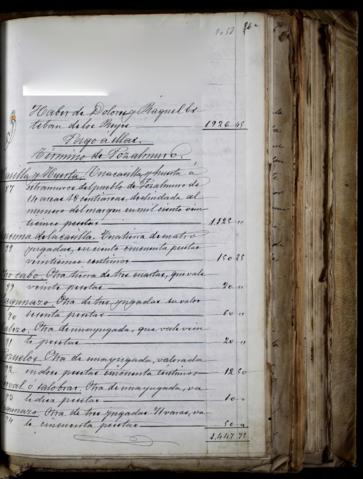 Haber de Dolores y Raquel Es
teban de los Reyes 1926..45
Pago a ellas.
Término de Tozalmoro.
y Huerta. Una casilla y huerta á
87 extramuros del pueblo de Tozalmoro de
14 areas 48 centiareas, deslindada al
numero del margen en mil ciento vein
pesetas 1122 "
cima de la casilla. Una tierra de cuatro
yugadas, en ciento cincuenta pesetas
veinticinco centimos 150 25
cabo. Otra tierra de tres cuartas, que vale
89 veinte pesetas 20 "
Otra de tres yugadas su valor
90 sesenta pesetas 60 "
Otra de una yugada, que vale vein
91 te pesetas 20 "
Otra de una yugada, valorada
92 en doce pesetas cincuenta centimos 12 50
ó salobrar. Otra de una yugada, va
le diez pesetas 10 "
Otra de tres yugadas 71 varas, va
94 le cincuenta pesetas 50 "
1,447 75